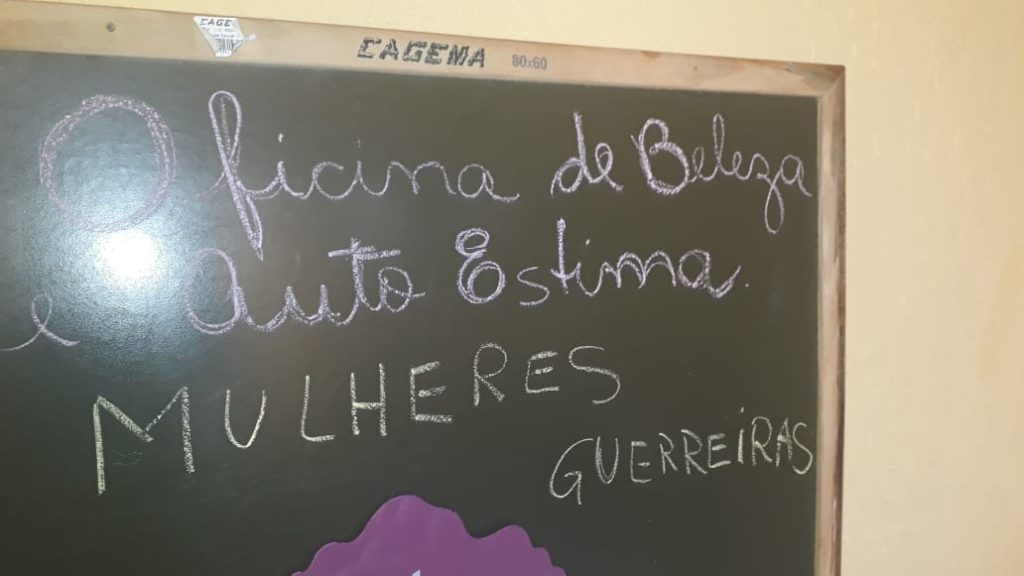 CAGE
CAGEMA 80x60
Oficina de Beleza
e Auto Estima.
MULHERES
GUERREIRAS